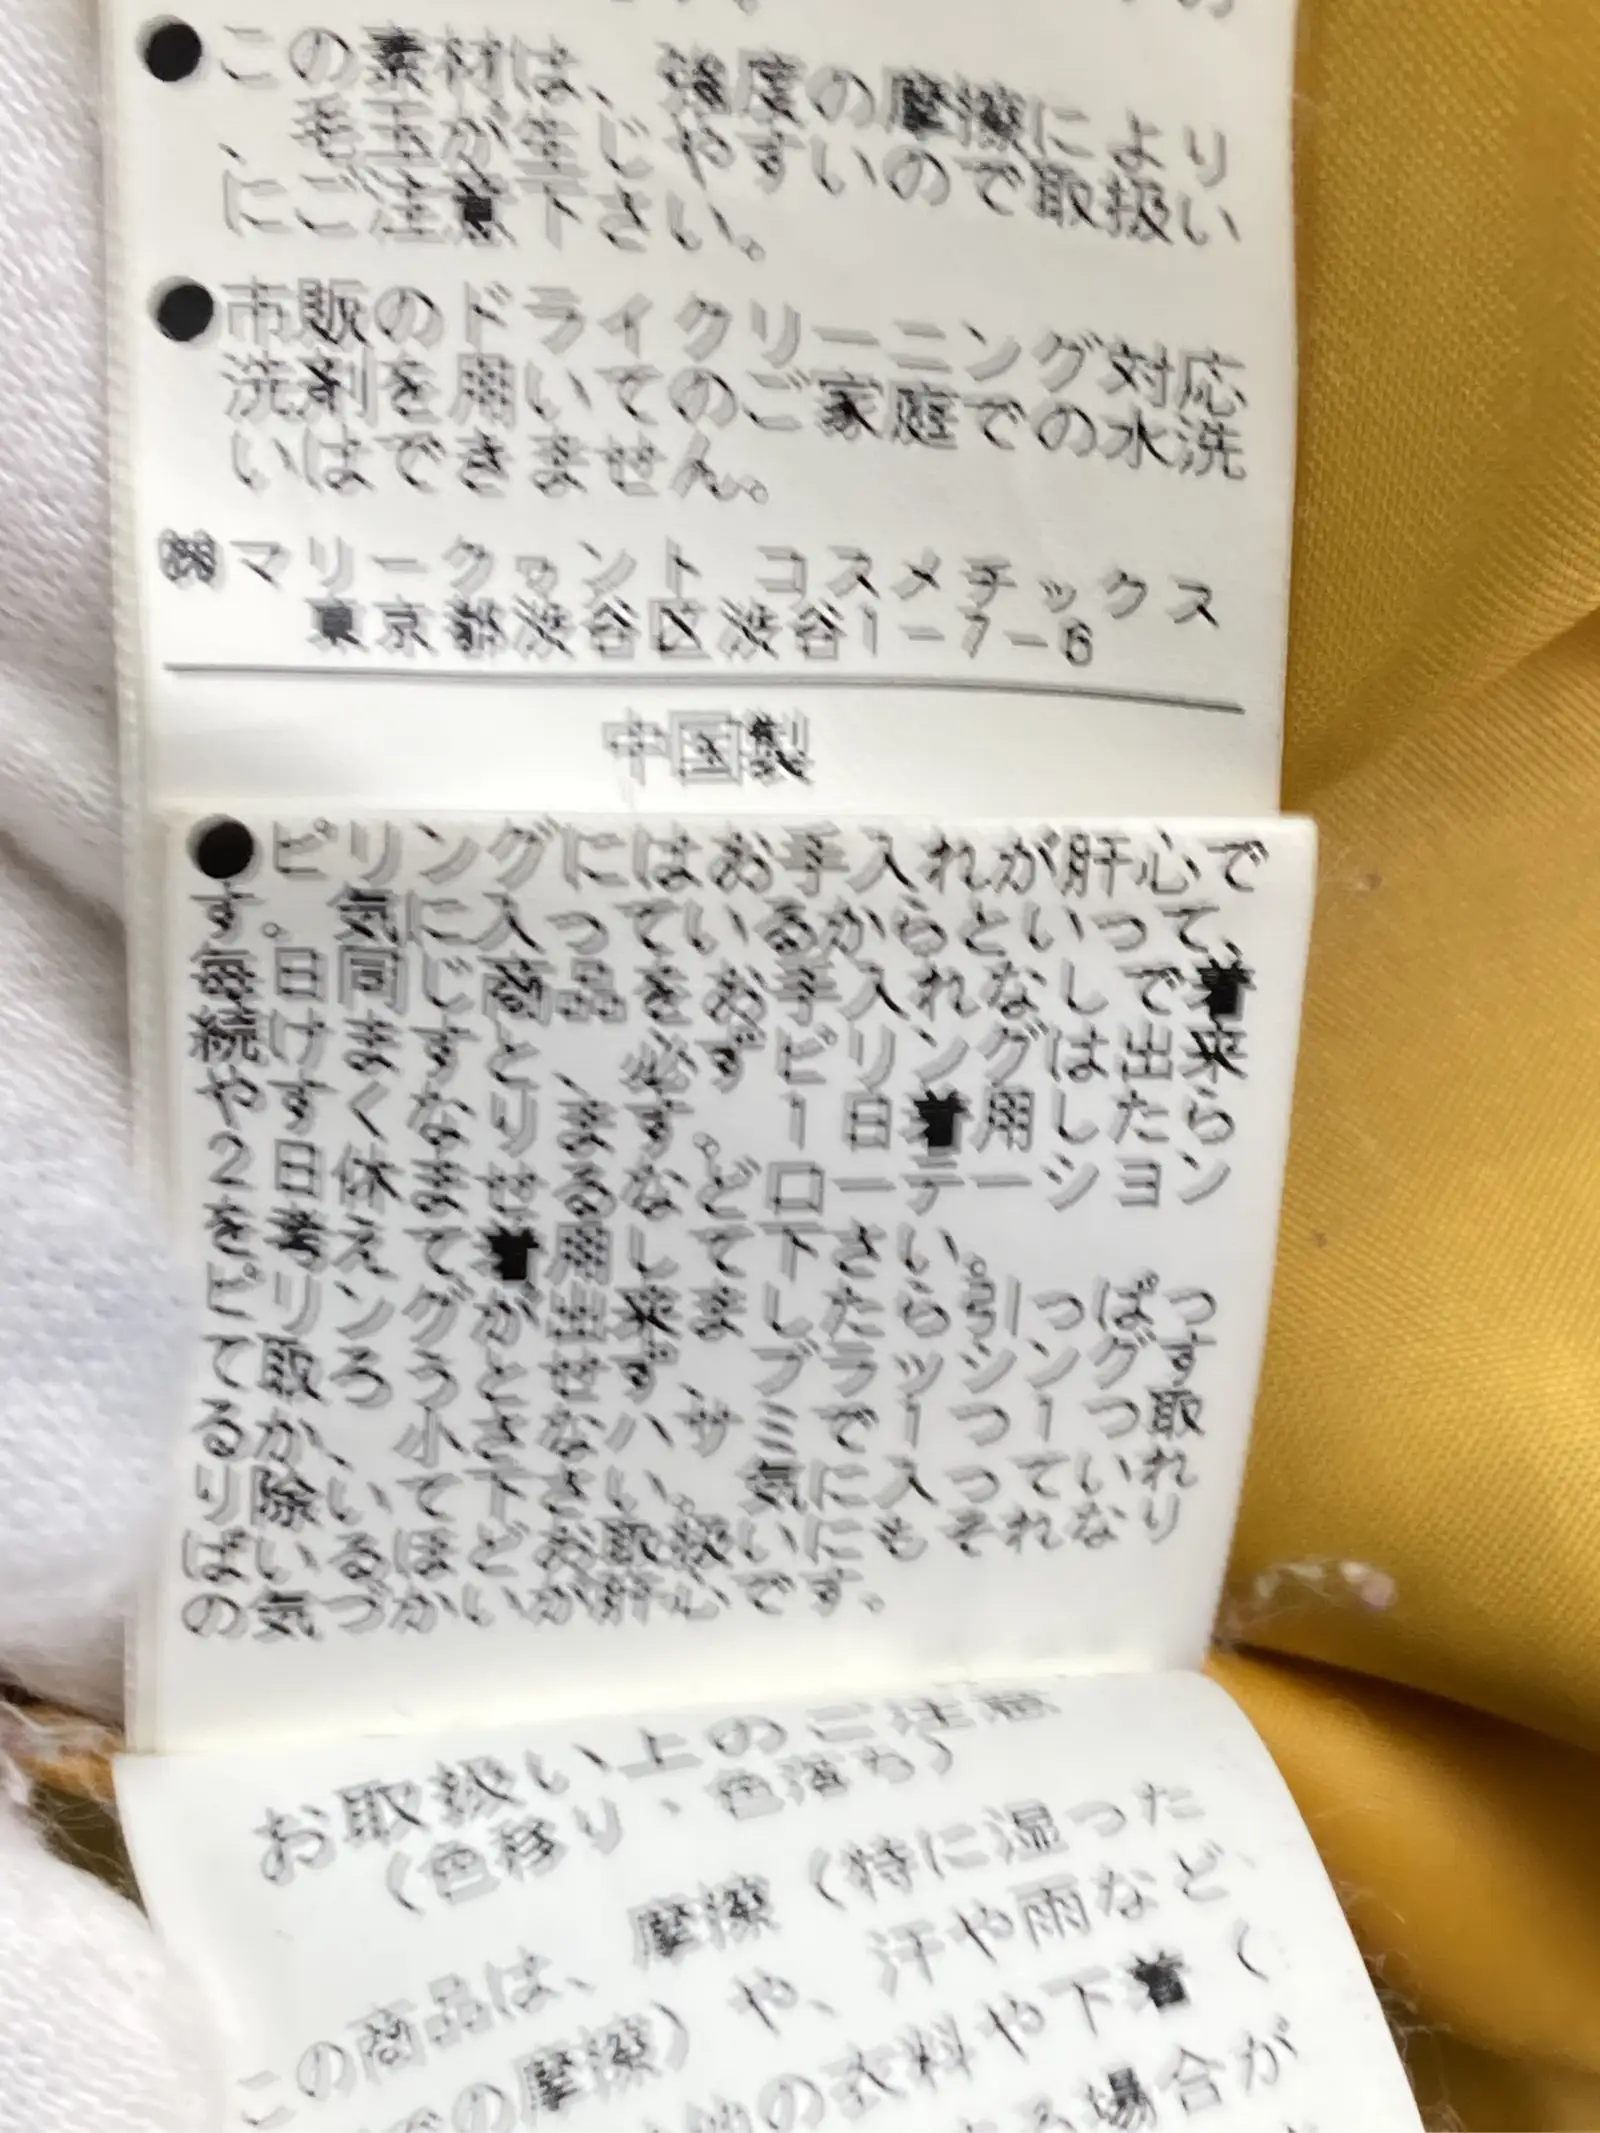 ●この素材は、強度の摩擦により
、毛玉が生じやすいので取扱い
にご注意下さい。
●市販のドライクリーニング対応
洗剤を用いてのご家庭での水洗
いはできません。
㈱マリークヮント コスメチックス
東京都渋谷区渋谷1-7-6
中国製
●ピリングにはお手入れが肝心で
す。気に入っているからといって、
毎日同じ商品をお手入れなしで着
続けますと、必ずピリングは出来
やすくなります。1日着用したら
2日休ませるなどローテーション
を考えて着用して下さい。
ピリングが出来ましたら引っぱっ
て取ろうとせず、ブラッシングす
るか、小さなハサミで1つ1つ取
り除いて下さい。気に入っていれ
ばいるほどお取扱いにもそれなり
の気づかいが肝心です。
お取扱い上のご注意
(色移り・色落ち)
この商品は、摩擦(特に湿った
での摩擦)や、汗や雨など、
の衣料や下着(
る場合が